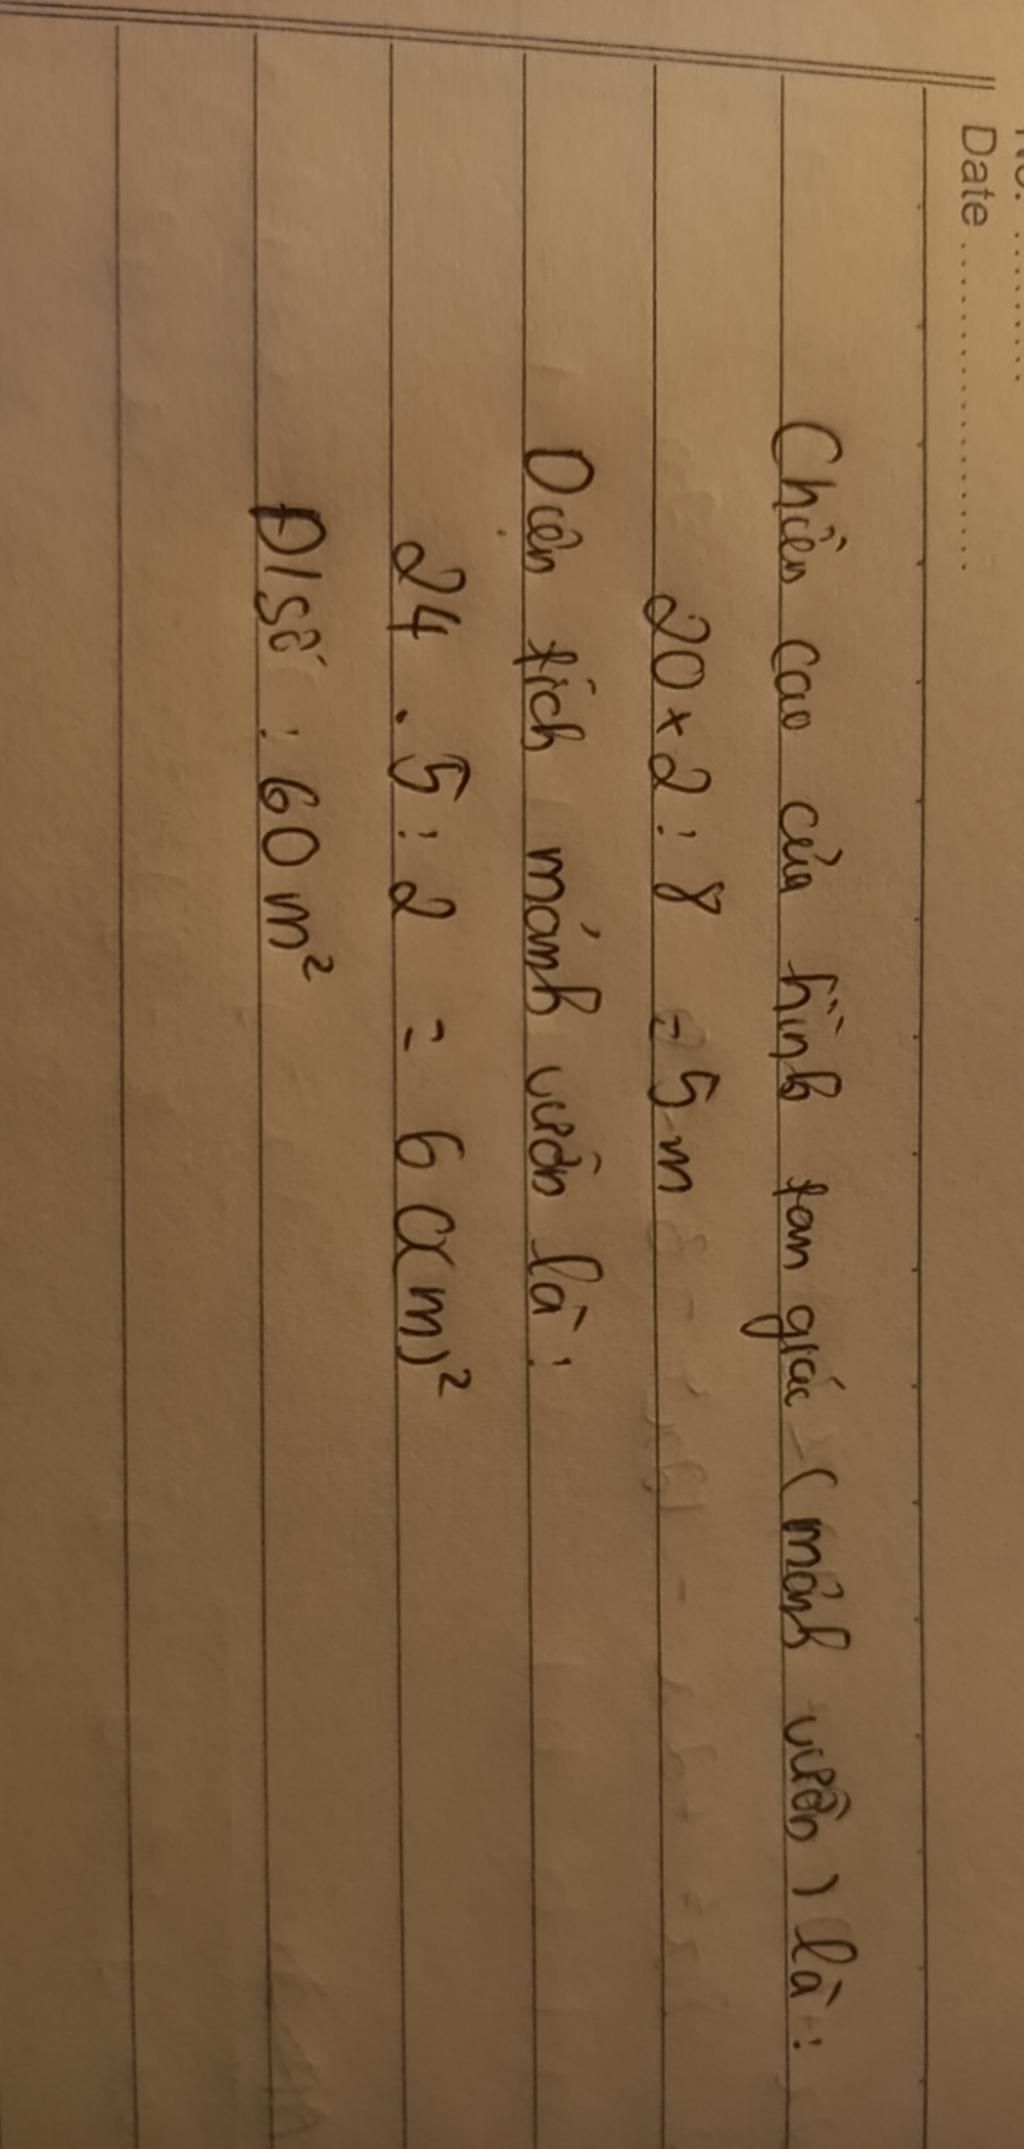 No. ..........
Date ........................
Chiều cao của hình tam giác (mảnh vườn) là:
20 x 2 : 8 = 5 m
Diện tích mảnh vườn là:
24 . 5 : 2 = 60(m)²
Đ/số : 60 m²